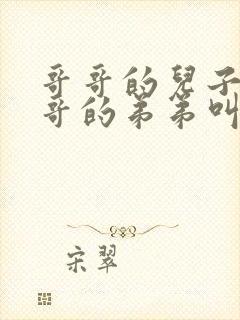 哥哥的兒子
哥的弟弟叫
宋翠